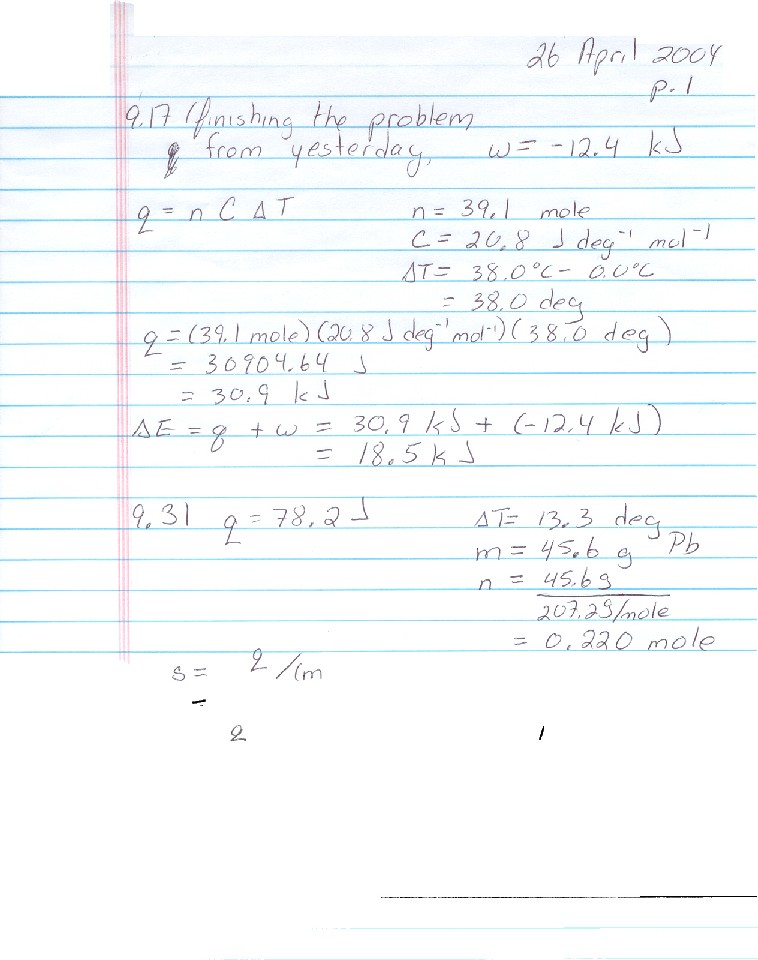 26 April 2004
p. 1
9.17 (finishing the problem
from yesterday, w = -12.4 kJ
q = n C Δ T n = 39.1 mole
C = 20.8 J deg⁻¹ mol⁻¹
ΔT = 38.0°C - 0.0°C
= 38.0 deg
q = (39.1 mole)(20.8 J deg⁻¹ mol⁻¹)(38.0 deg)
= 30904.64 J
= 30.9 kJ
ΔE = q + w = 30.9 kJ + (-12.4 kJ)
= 18.5 kJ
9.31 q = 78.2 J ΔT = 13.3 deg
m = 45.6 g Pb
n = 45.6 g
207.2 g/mole
= 0.220 mole
s = q /(m